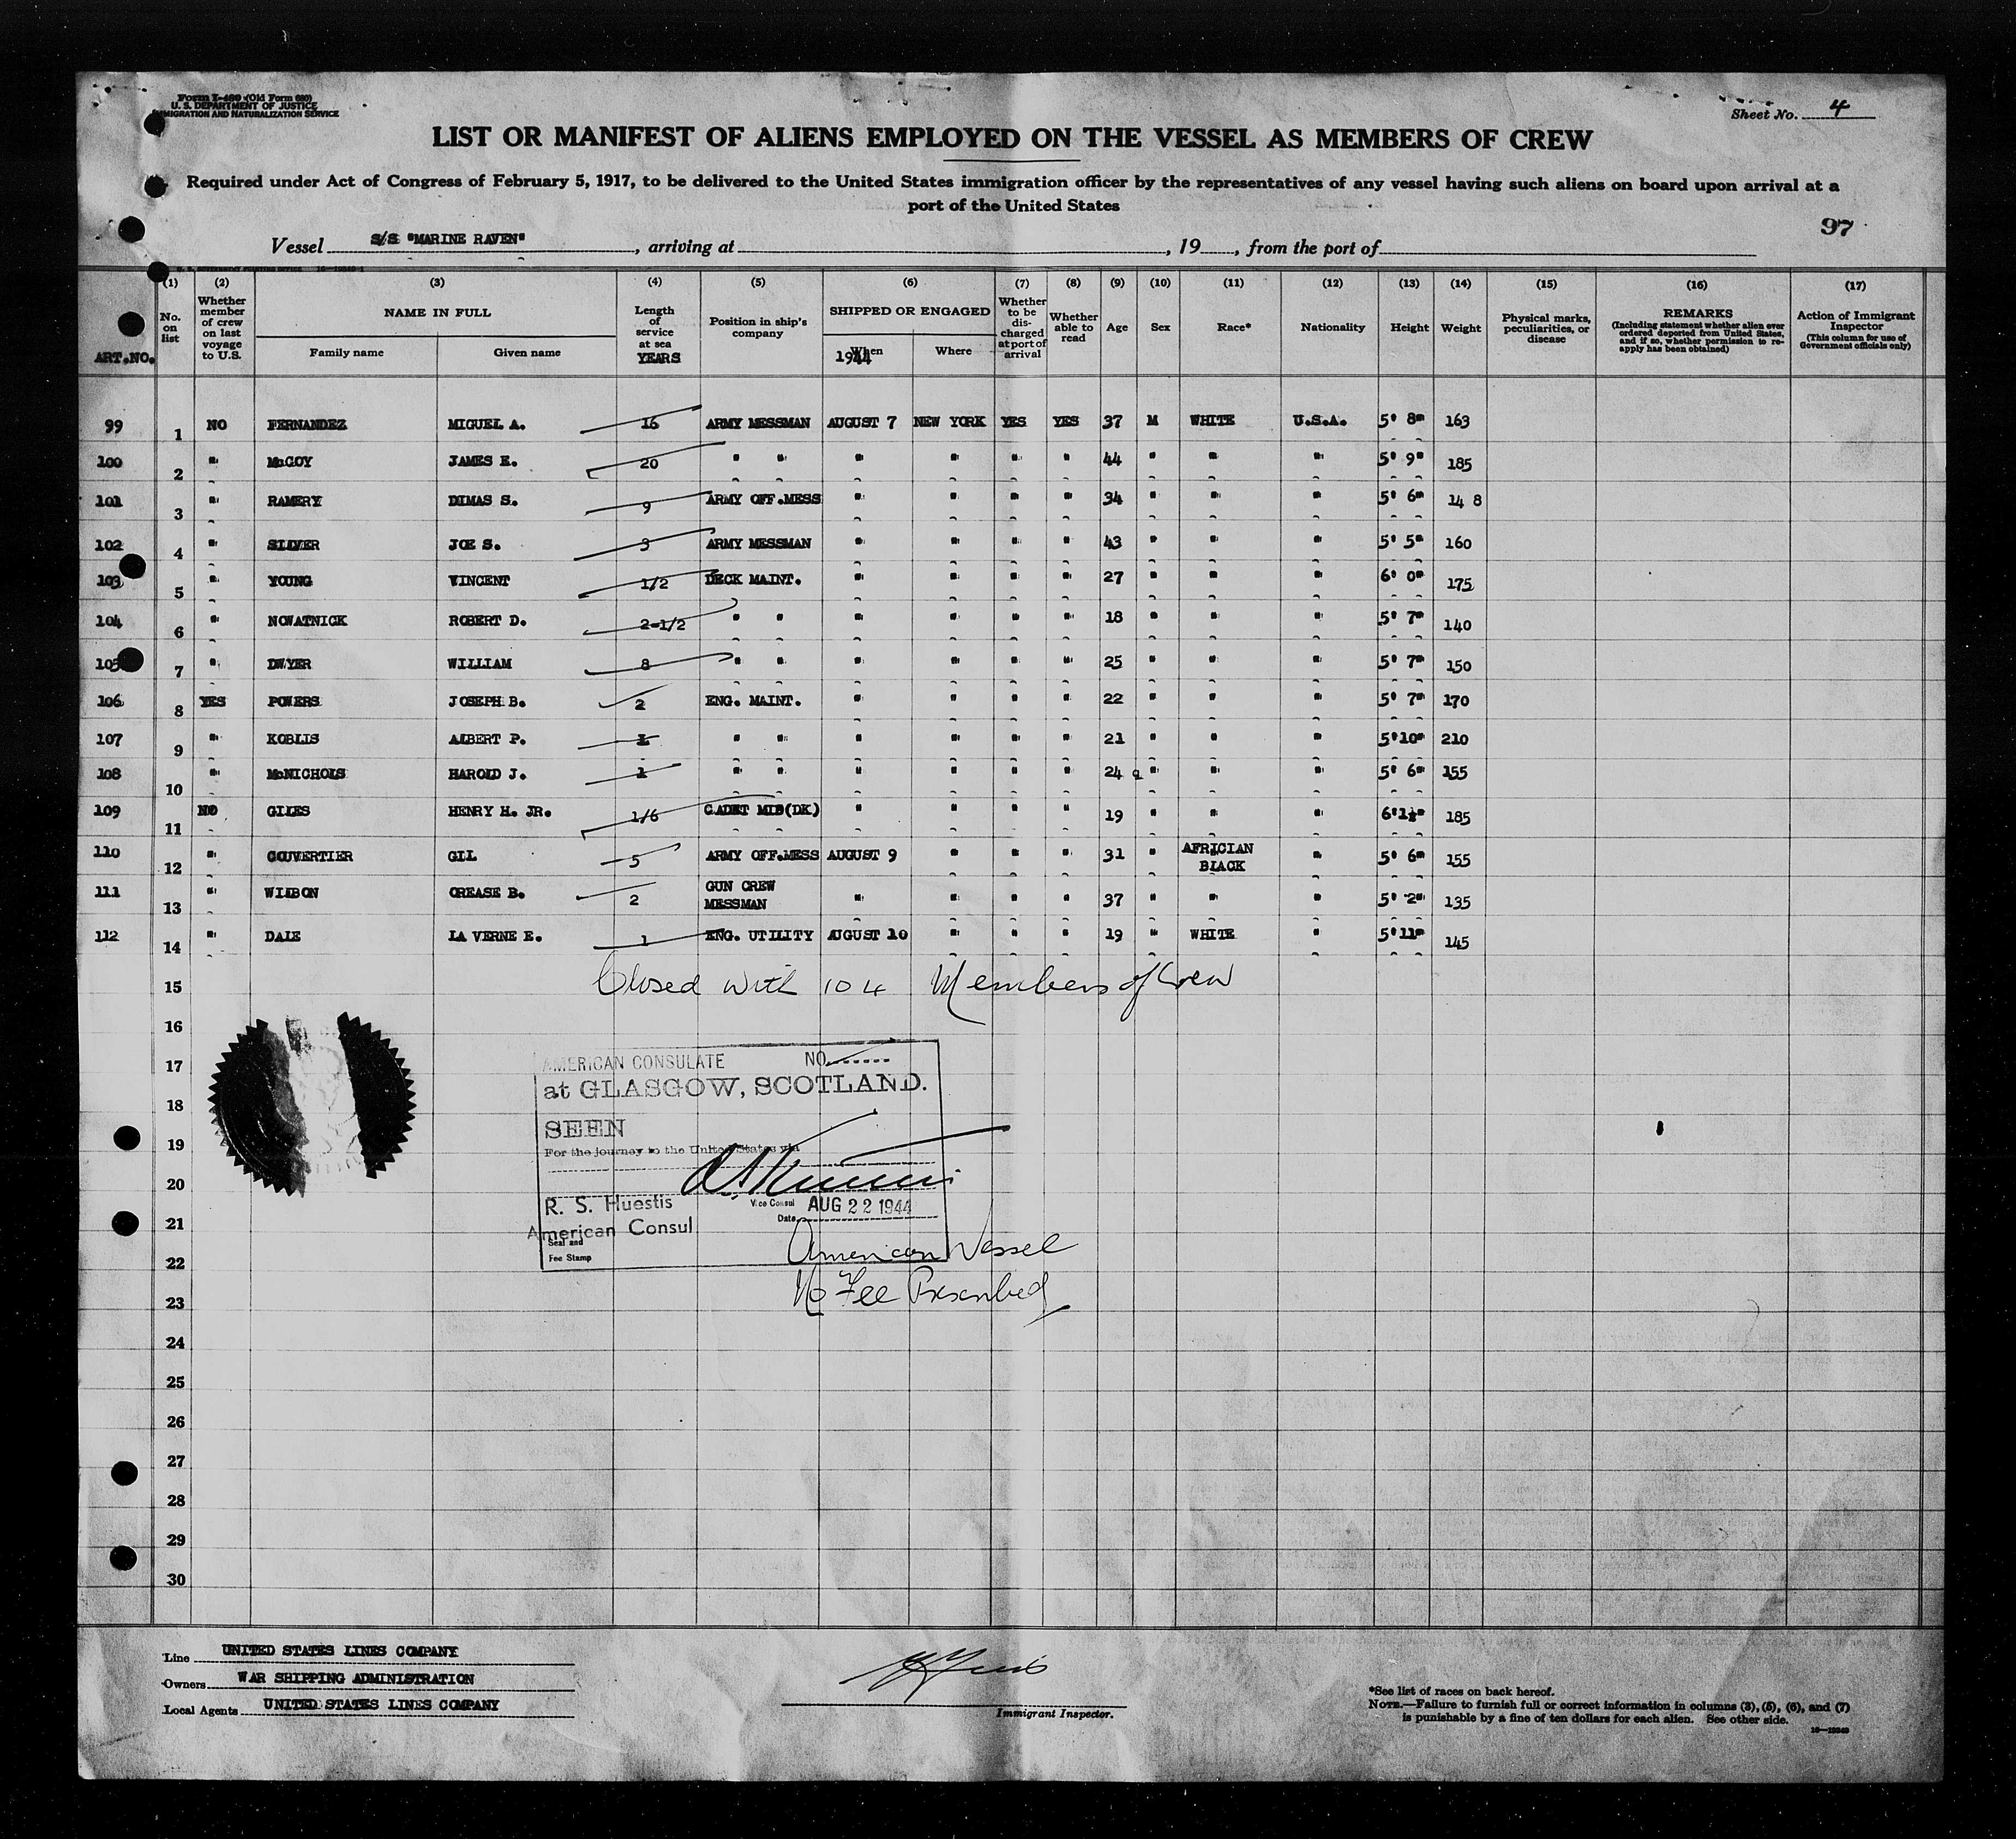 Form I-480 (Old Form 680)
U. S. DEPARTMENT OF JUSTICE
IMMIGRATION AND NATURALIZATION SERVICE
Sheet No. 4
LIST OR MANIFEST OF ALIENS EMPLOYED ON THE VESSEL AS MEMBERS OF CREW
Required under Act of Congress of February 5, 1917, to be delivered to the United States immigration officer by the representatives of any vessel having such aliens on board upon arrival at a
port of the United States
97
Vessel S/S "MARINE RAVEN", arriving at , 19 , from the port of
(1) (2) (3) (4) (5) (6) (7) (8) (9) (10) (11) (12) (13) (14) (15) (16) (17)
ART.NO. No. on list Whether member of crew on last voyage to U.S. NAME IN FULL Family name Given name Length of service at sea YEARS Position in ship's company SHIPPED OR ENGAGED When 1944 Where Whether to be discharged at port of arrival Whether able to read Age Sex Race* Nationality Height Weight Physical marks, peculiarities, or disease REMARKS (Including statement whether alien ever ordered deported from United States, and if so, whether permission to reapply has been obtained) Action of Immigrant Inspector (This column for use of Government officials only)
99 1 NO FERNANDEZ MIGUEL A. 16 ARMY MESSMAN AUGUST 7 NEW YORK YES YES 37 M WHITE U.S.A. 5' 8" 163
100 2 " McCOY JAMES E. 20 " " " " " " 44 " " " 5' 9" 185
101 3 " RAMERY DIMAS S. 9 ARMY OFF.MESS " " " " 34 " " " 5' 6" 14 8
102 4 " SILVER JOE S. 3 ARMY MESSMAN " " " " 43 " " " 5' 5" 160
103 5 " YOUNG VINCENT 1/2 DECK MAINT. " " " " 27 " " " 6' 0" 175
104 6 " NOWATNICK ROBERT D. 2-1/2 " " " " " " 18 " " " 5' 7" 140
105 7 " DWYER WILLIAM 8 " " " " " " 25 " " " 5' 7" 150
106 8 YES POWERS JOSEPH B. 2 ENG. MAINT. " " " " 22 " " " 5' 7" 170
107 9 " KOBLIS ALBERT P. 1 " " " " " " 21 " " " 5'10" 210
108 10 " McNICHOLS HAROLD J. 1 " " " " " " 24 " " " 5' 6" 155
109 11 NO GILES HENRY H. JR. 1/6 CADET MID(DK) " " " " 19 " " " 6'1½" 185
110 12 " COUVERTIER GIL 5 ARMY OFF.MESS AUGUST 9 " " " 31 " AFRICIAN BLACK " 5' 6" 155
111 13 " WILBON CREASE B. 2 GUN CREW MESSMAN " " " " 37 " " " 5' 2" 135
112 14 " DALE LA VERNE E. 1 ENG. UTILITY AUGUST 10 " " " 19 " WHITE " 5'11" 145
15 Closed with 104 Members of Crew
16
17 AMERICAN CONSULATE NO.
at GLASGOW, SCOTLAND.
18
SEEN
19 For the journey to the United States via
20
R. S. Huestis Vice Consul
Date AUG 22 1944
21 American Consul
Seal and
Fee Stamp
American Vessel
22
No Fee Prescribed
23
24
25
26
27
28
29
30
Line UNITED STATES LINES COMPANY
Owners WAR SHIPPING ADMINISTRATION
Local Agents UNITED STATES LINES COMPANY
Immigrant Inspector.
*See list of races on back hereof.
NOTE.—Failure to furnish full or correct information in columns (3), (5), (6), and (7)
is punishable by a fine of ten dollars for each alien. See other side.